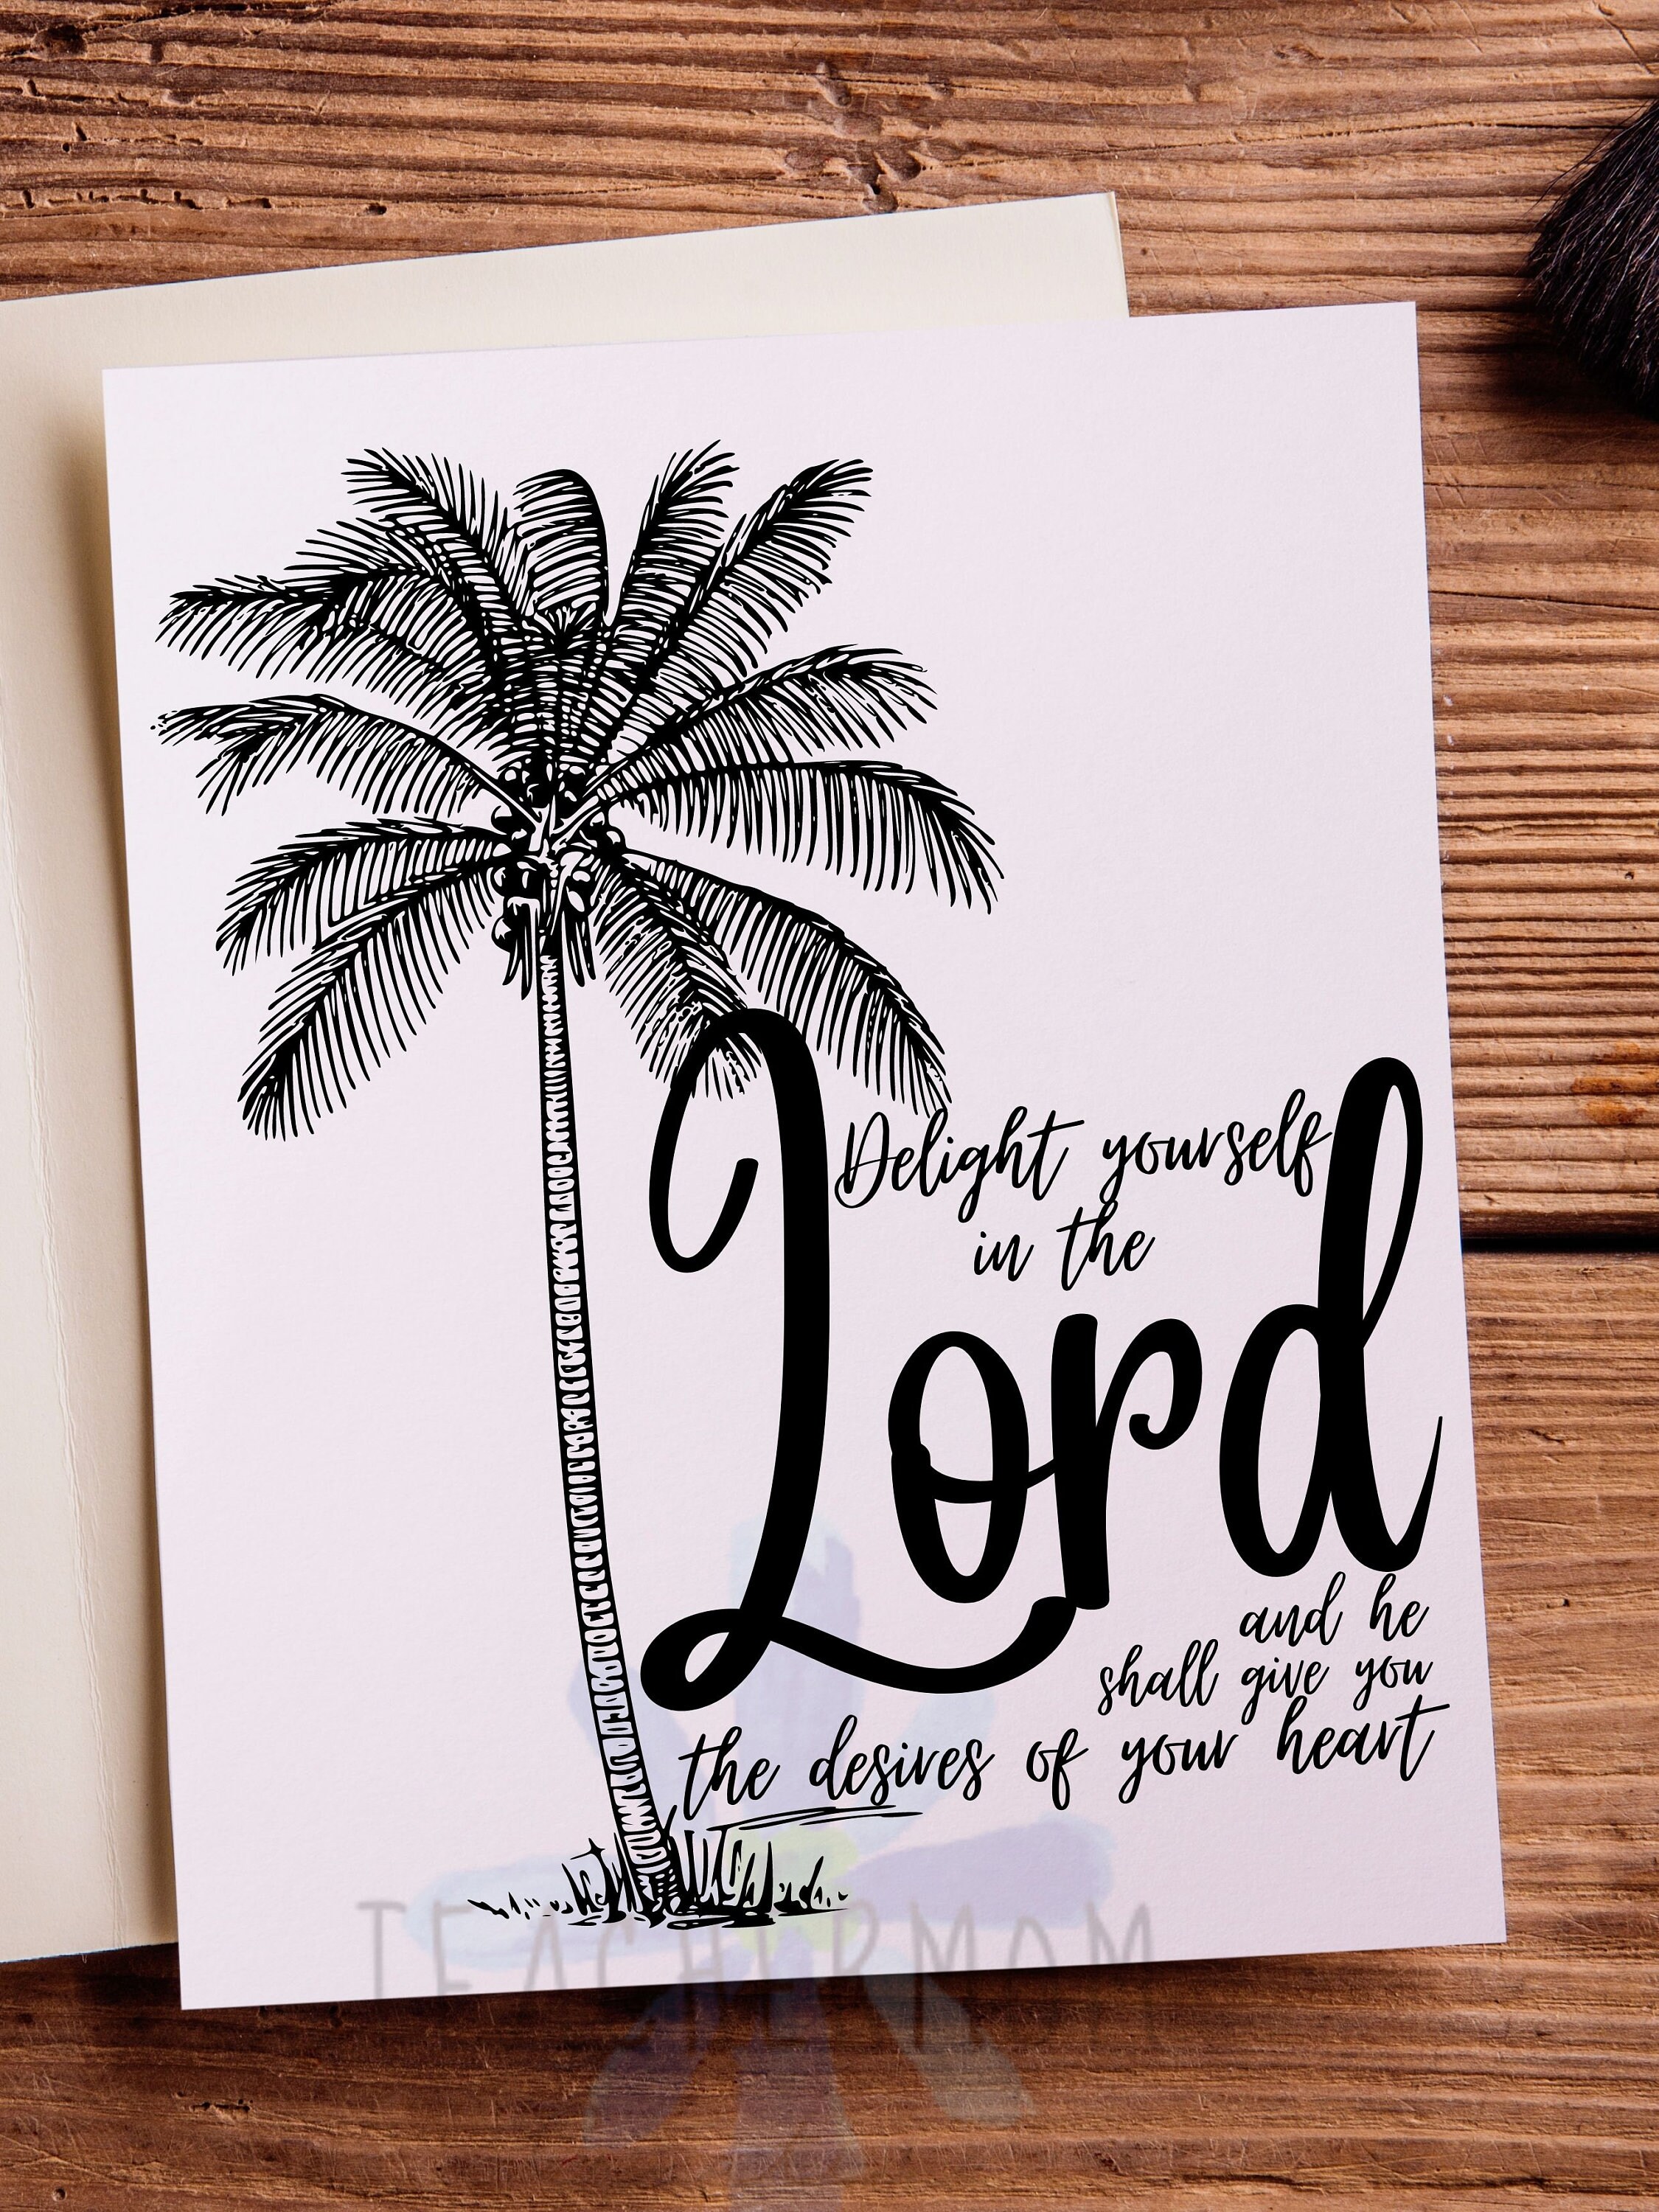 Delight yourself
in the
Lord
and he
shall give you
the desires of your heart
TEACHERMOM